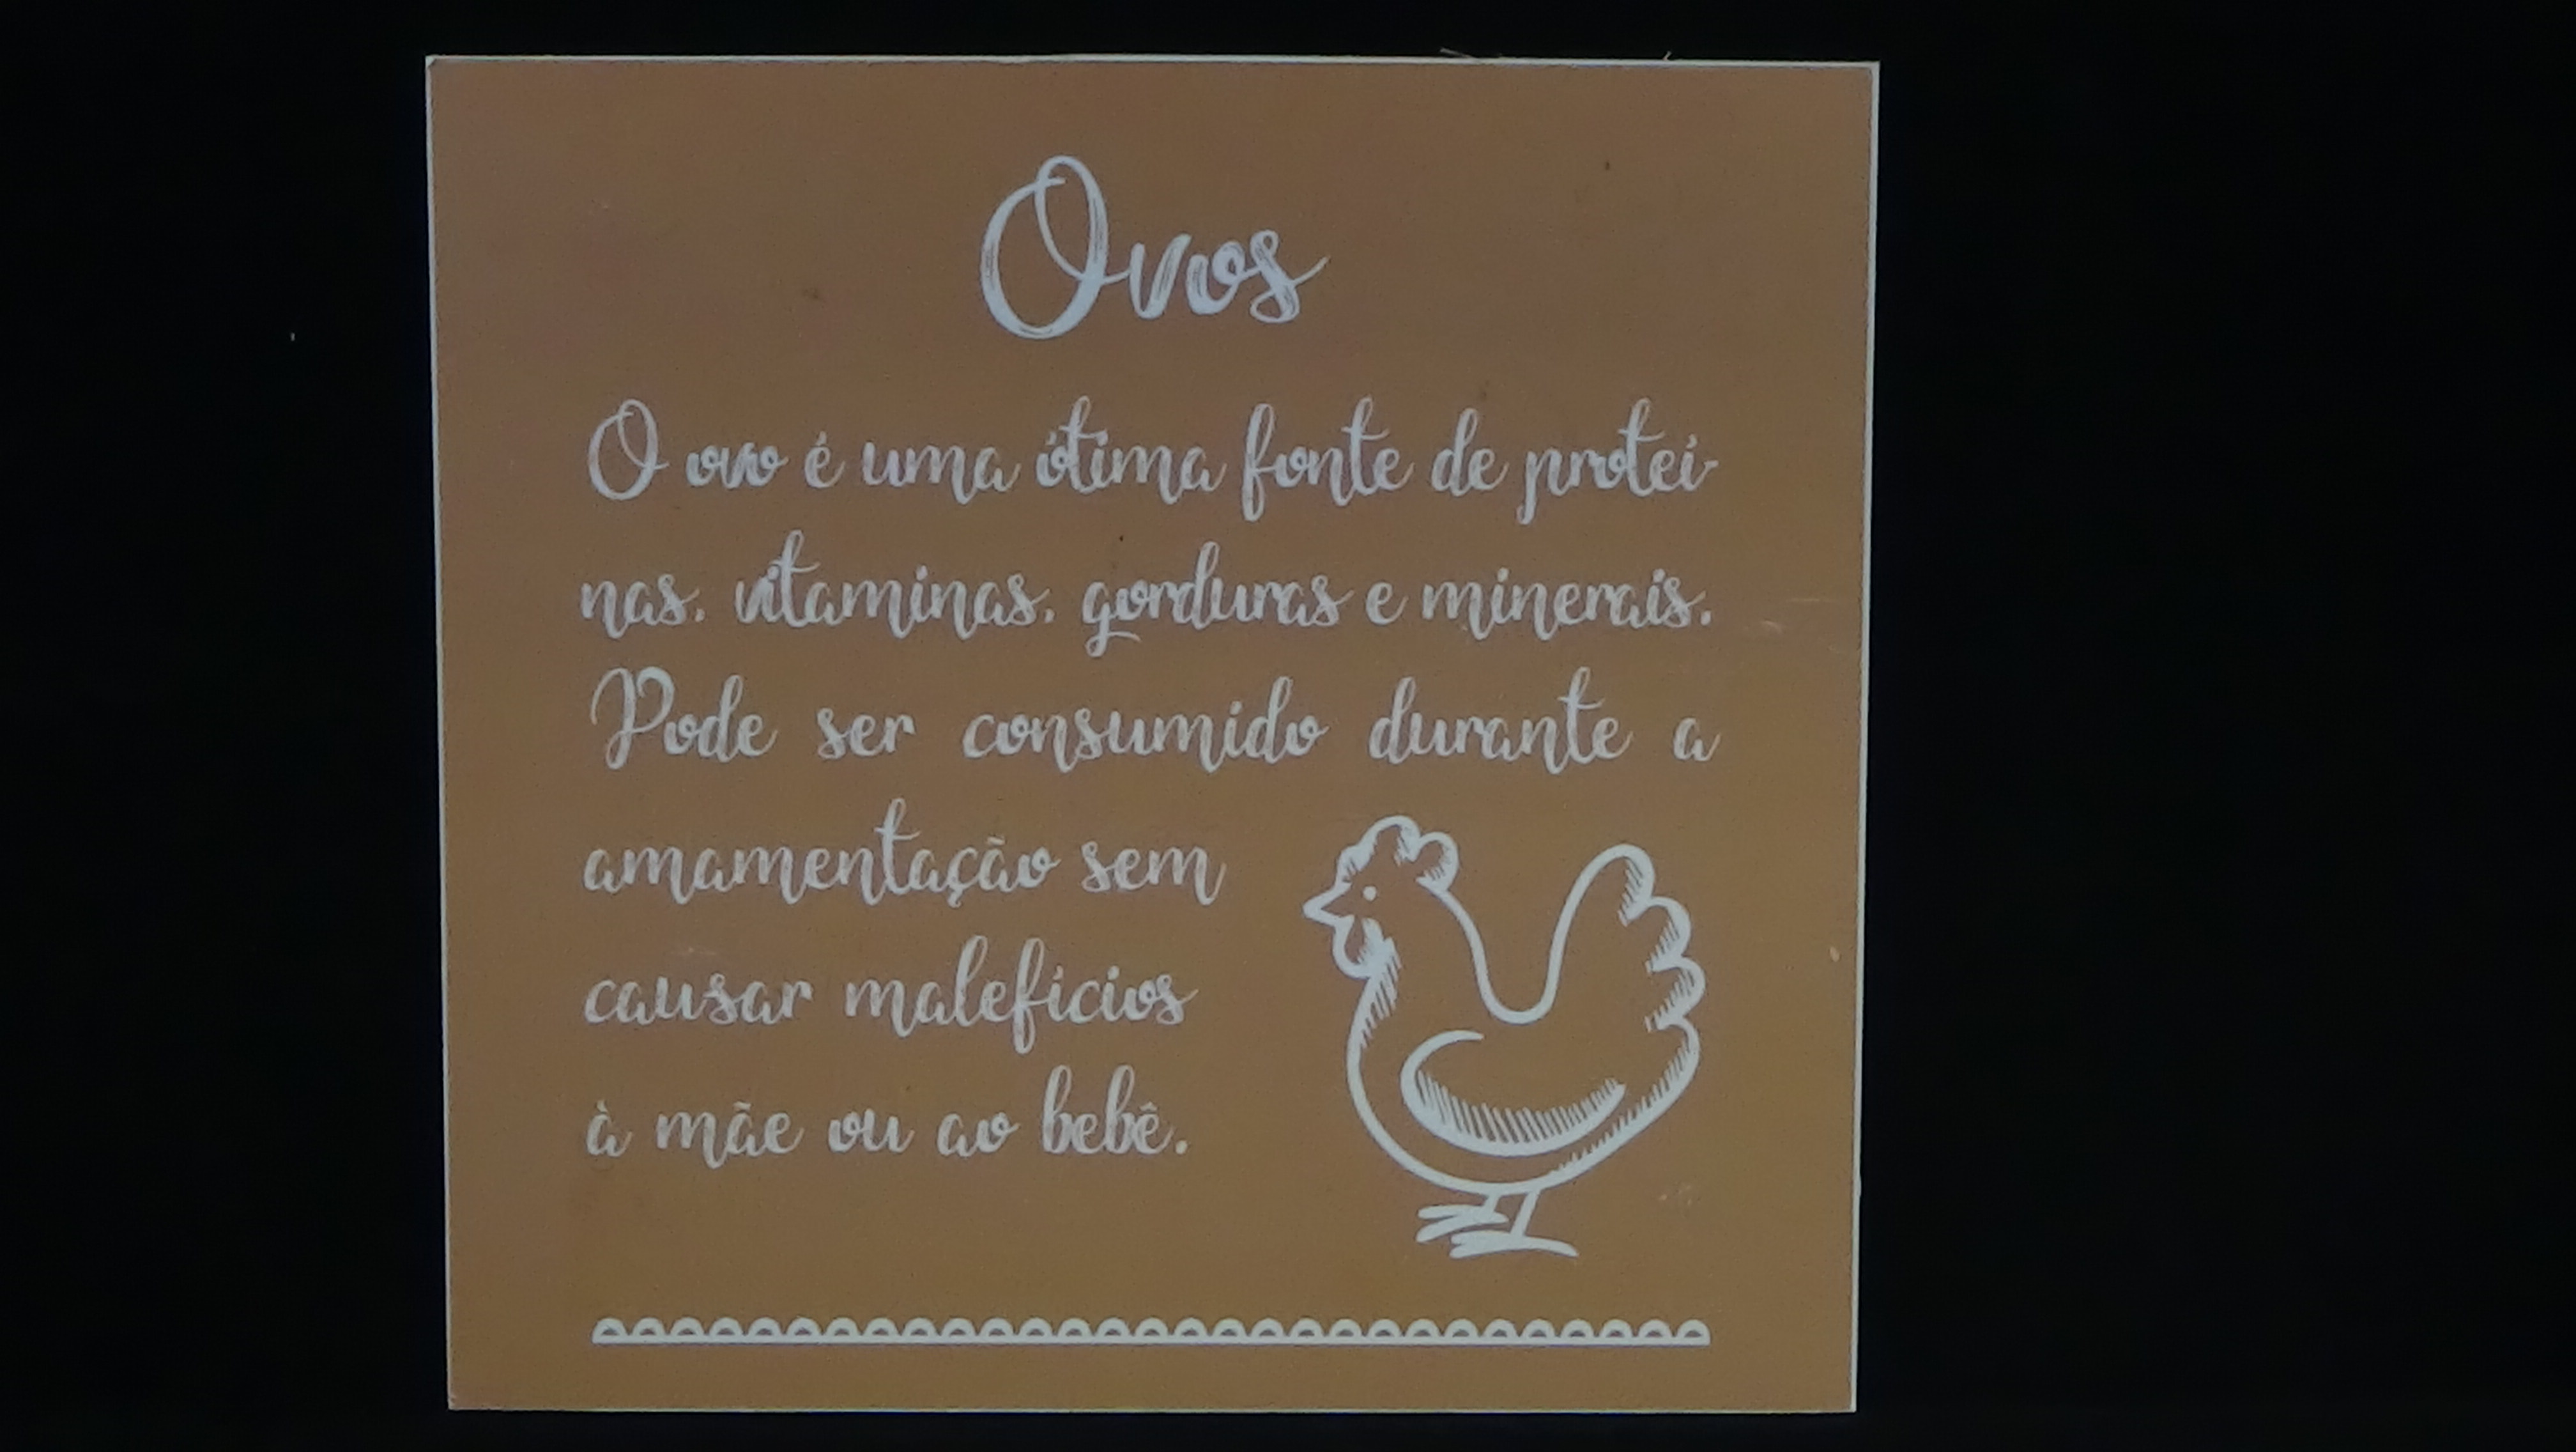 Ovos
O ovo é uma ótima fonte de proteí-
nas, vitaminas, gorduras e minerais.
Pode ser consumido durante a
amamentação sem
causar malefícios
à mãe ou ao bebê.